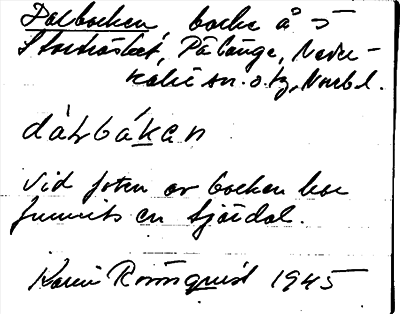 Dalbacken backe å S
Storträsket, Pålänge, Neder-
kalix sn. o. tg, Norrb l.
dàḷbákan
Vid foten av backen har
funnits en tjärdal.
Karin Rönnquist 1945